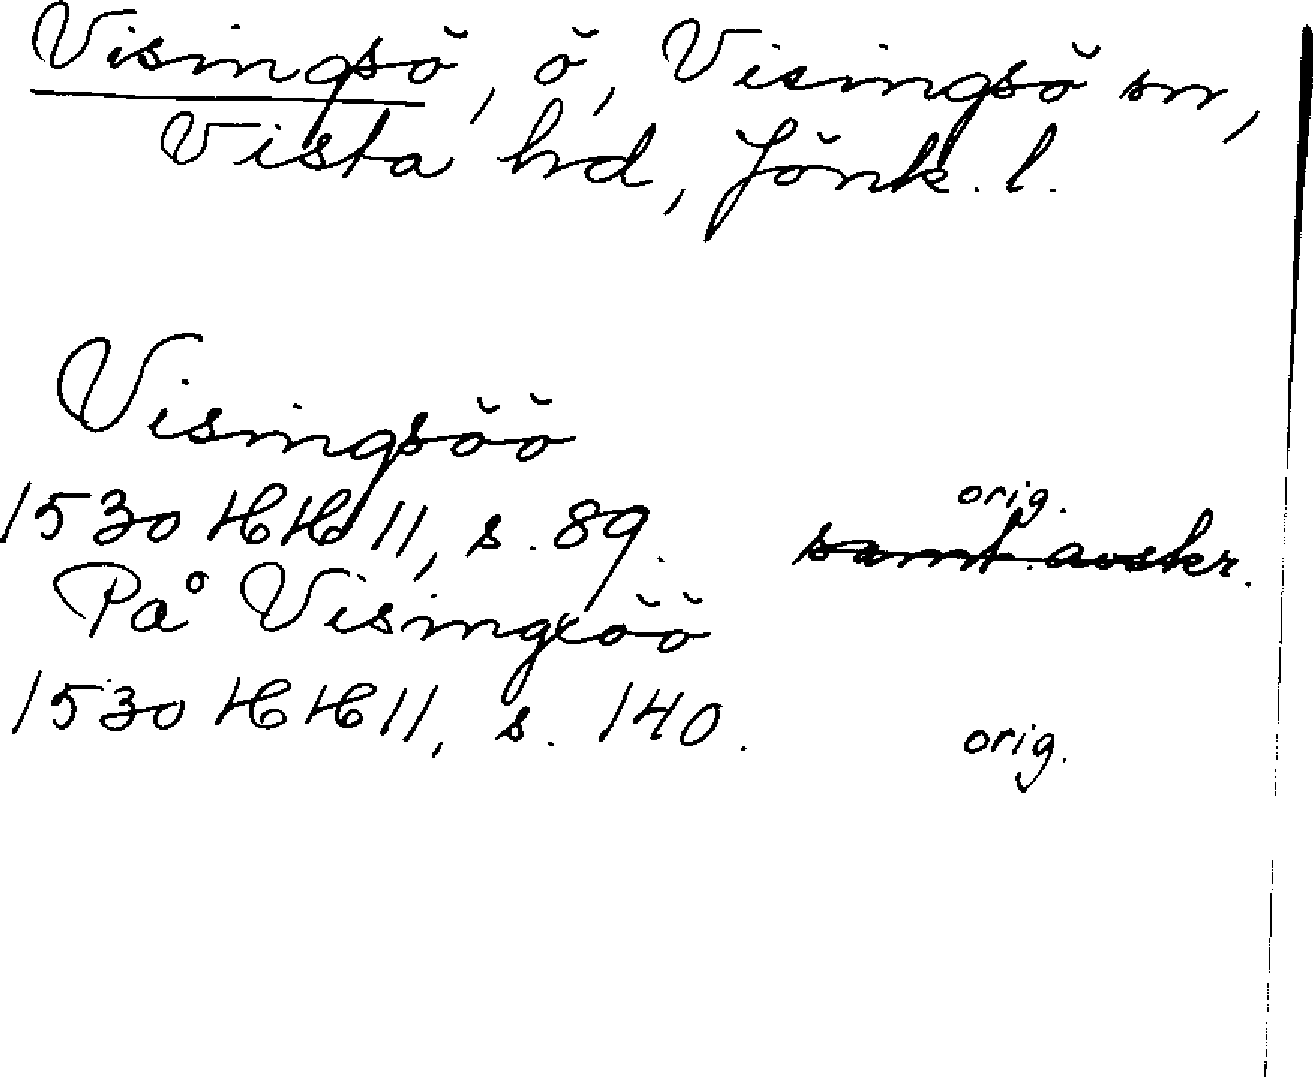 Visingsö, ö, Visingsö sn,
Vista hd, Jönk. l.
Visingsöö
1530 HH 11, s. 89. orig.
samt. avskr.
På Visingxöö
1530 HH 11, s. 140. orig.